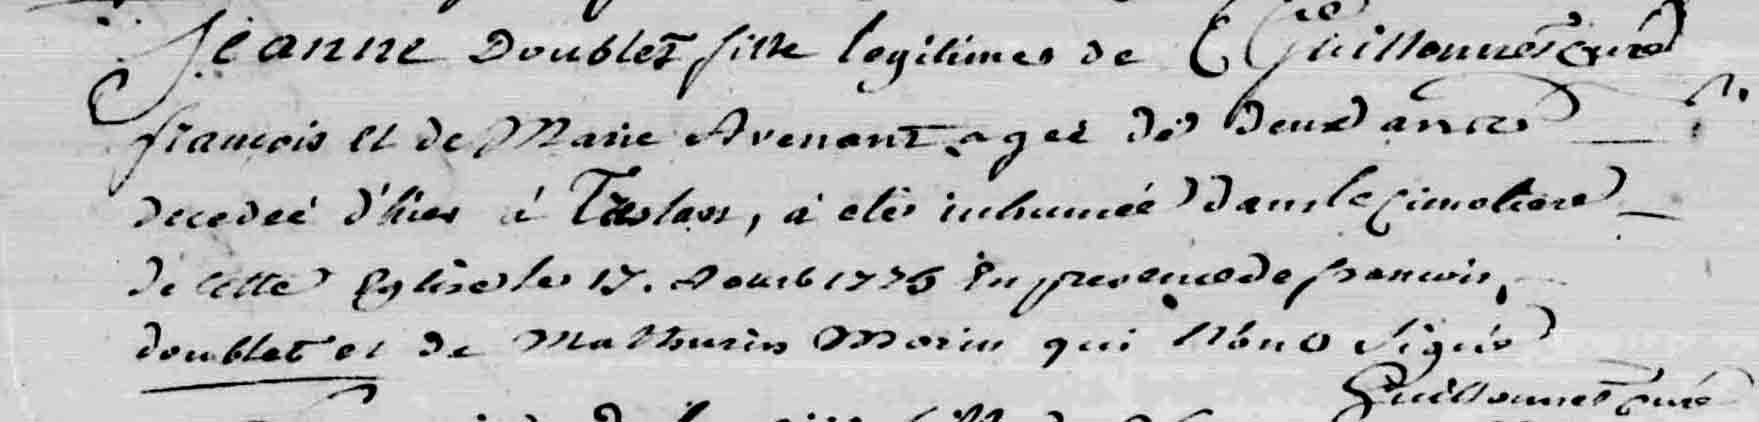 Jeanne Doublet fille legitimes de Guillonnet curé
françois et de Marie Avenant ageé de deux ans
decedeé d'hier á, á eté inhumée dans le cimetiere
de cette Eglise le 17. Aoust 1776 En presence de francois
doublet et de Mathurin Morin qui n'ont signé
Guillonnet curé